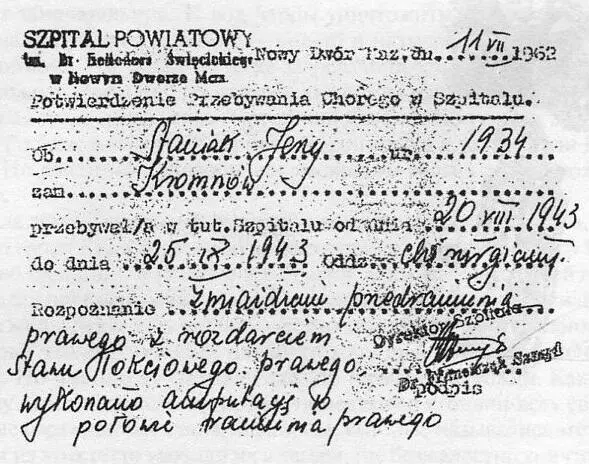 SZPITAL POWIATOWY
im. Dr Święcickiej
w Nowym Dworze Maz.
Nowy Dwór Maz. dn. 11 VII 1962
Potwierdzenie Przebywania Chorego w Szpitalu.
Ob. Staniak Jerzy ur. 1934
zam. Kromnów
przebywał/a w tut. Szpitalu od dnia 20 VIII 1943
do dnia 25 IX 1943 Oddz. chirurgiczny.
Rozpoznanie zmiażdżenie przedramienia
prawego z rozdarciem
Dyrektor Szpitala
stawu łokciowego prawego
Dr Franciszek
wykonano amputację w
podpis
połowie ramienia prawego